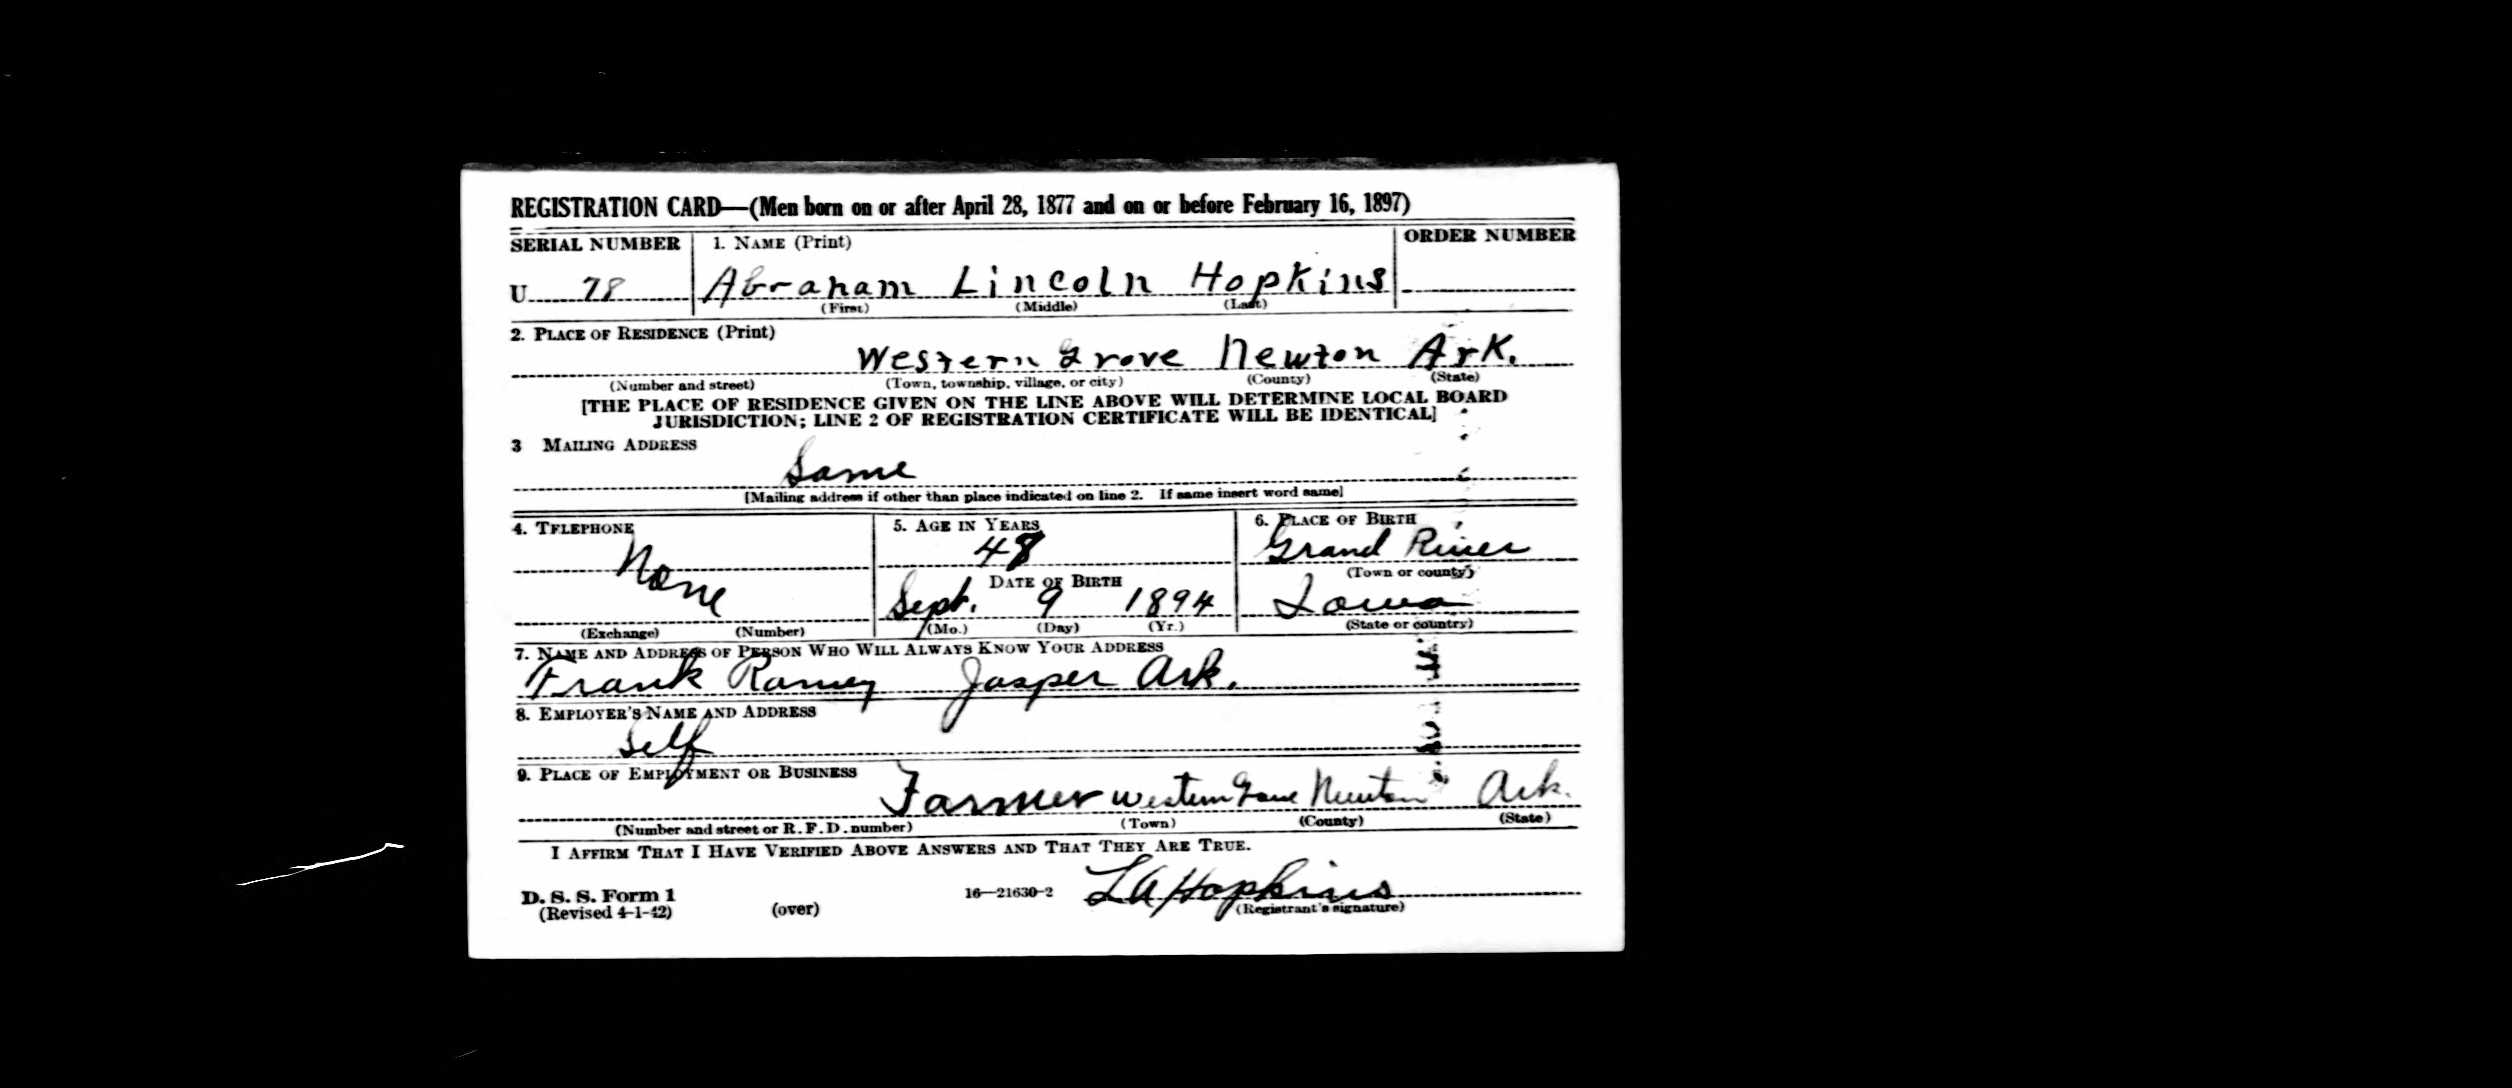 REGISTRATION CARD—(Men born on or after April 28, 1877 and on or before February 16, 1897)
SERIAL NUMBER 1. NAME (Print) ORDER NUMBER
U 78 Abraham Lincoln Hopkins
(First) (Middle) (Last)
2. PLACE OF RESIDENCE (Print)
Western Grove Newton Ark.
(Number and street) (Town, township, village, or city) (County) (State)
[THE PLACE OF RESIDENCE GIVEN ON THE LINE ABOVE WILL DETERMINE LOCAL BOARD
JURISDICTION; LINE 2 OF REGISTRATION CERTIFICATE WILL BE IDENTICAL]
3 MAILING ADDRESS
Same
[Mailing address if other than place indicated on line 2. If same insert word same]
4. TELEPHONE 5. AGE IN YEARS 6. PLACE OF BIRTH
None 48 Grand River
DATE OF BIRTH (Town or county)
Sept. 9 1894 Iowa
(Exchange) (Number) (Mo.) (Day) (Yr.) (State or country)
7. NAME AND ADDRESS OF PERSON WHO WILL ALWAYS KNOW YOUR ADDRESS
Frank Ramey Jasper Ark.
8. EMPLOYER'S NAME AND ADDRESS
Self
9. PLACE OF EMPLOYMENT OR BUSINESS
Farmer Western Grove Newton Ark.
(Number and street or R. F. D. number) (Town) (County) (State)
I AFFIRM THAT I HAVE VERIFIED ABOVE ANSWERS AND THAT THEY ARE TRUE.
D. S. S. Form 1
(Revised 4-1-42) (over) 16—21630-2 L A Hopkins
(Registrant's signature)